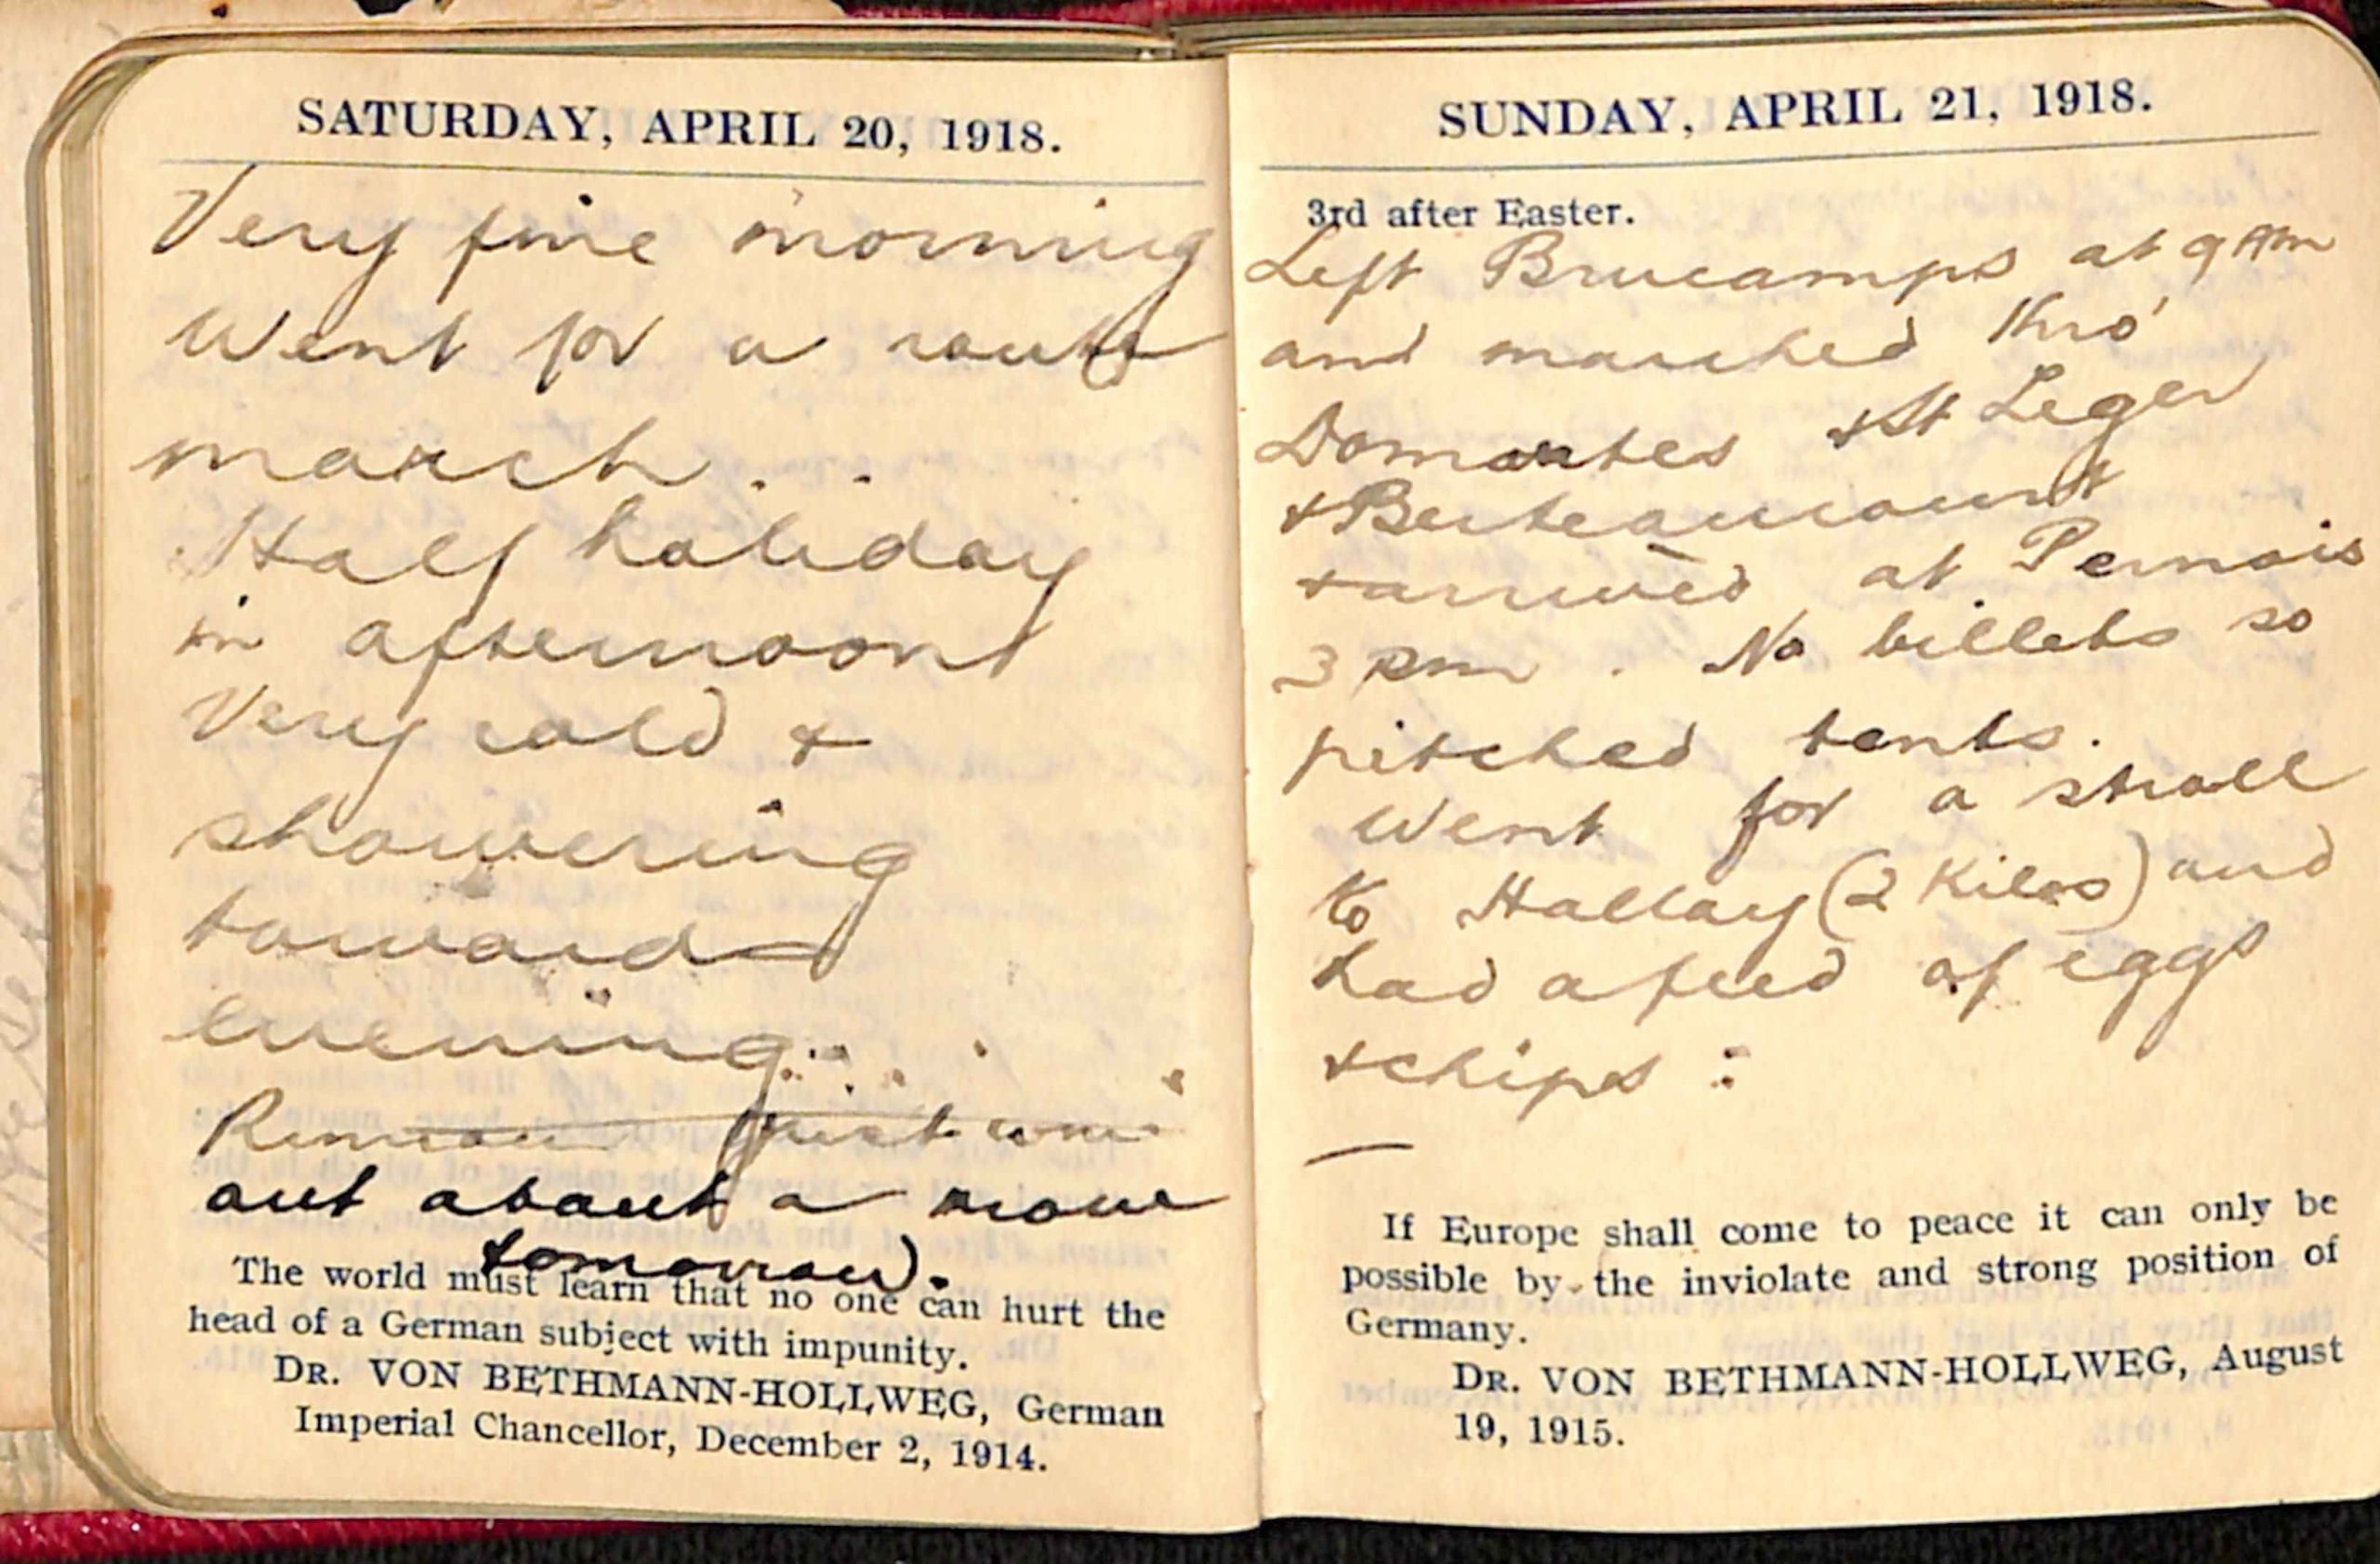 SATURDAY, APRIL 20, 1918.
Very fine morning
Went for a route
march . .
Half holiday
in afternoon
Very cold +
showering
towards
evening
just come
out about a move
tomorrow).
The world must learn that no one can hurt the
head of a German subject with impunity.
DR. VON BETHMANN-HOLLWEG, German
Imperial Chancellor, December 2, 1914.
SUNDAY, APRIL 21, 1918.
3rd after Easter.
Left Brucamps at 9 AM
and marched thro'
Domartes + St Leger
+ Berteaucourt
+ arrived at Pernois
3 PM . No billets so
pitched tents.
Went for a stroll
to Halloy (2 Kilos) and
had a feed of eggs
+ chips :
—
If Europe shall come to peace it can only be
possible by the inviolate and strong position of
Germany.
DR. VON BETHMANN-HOLLWEG, August
19, 1915.